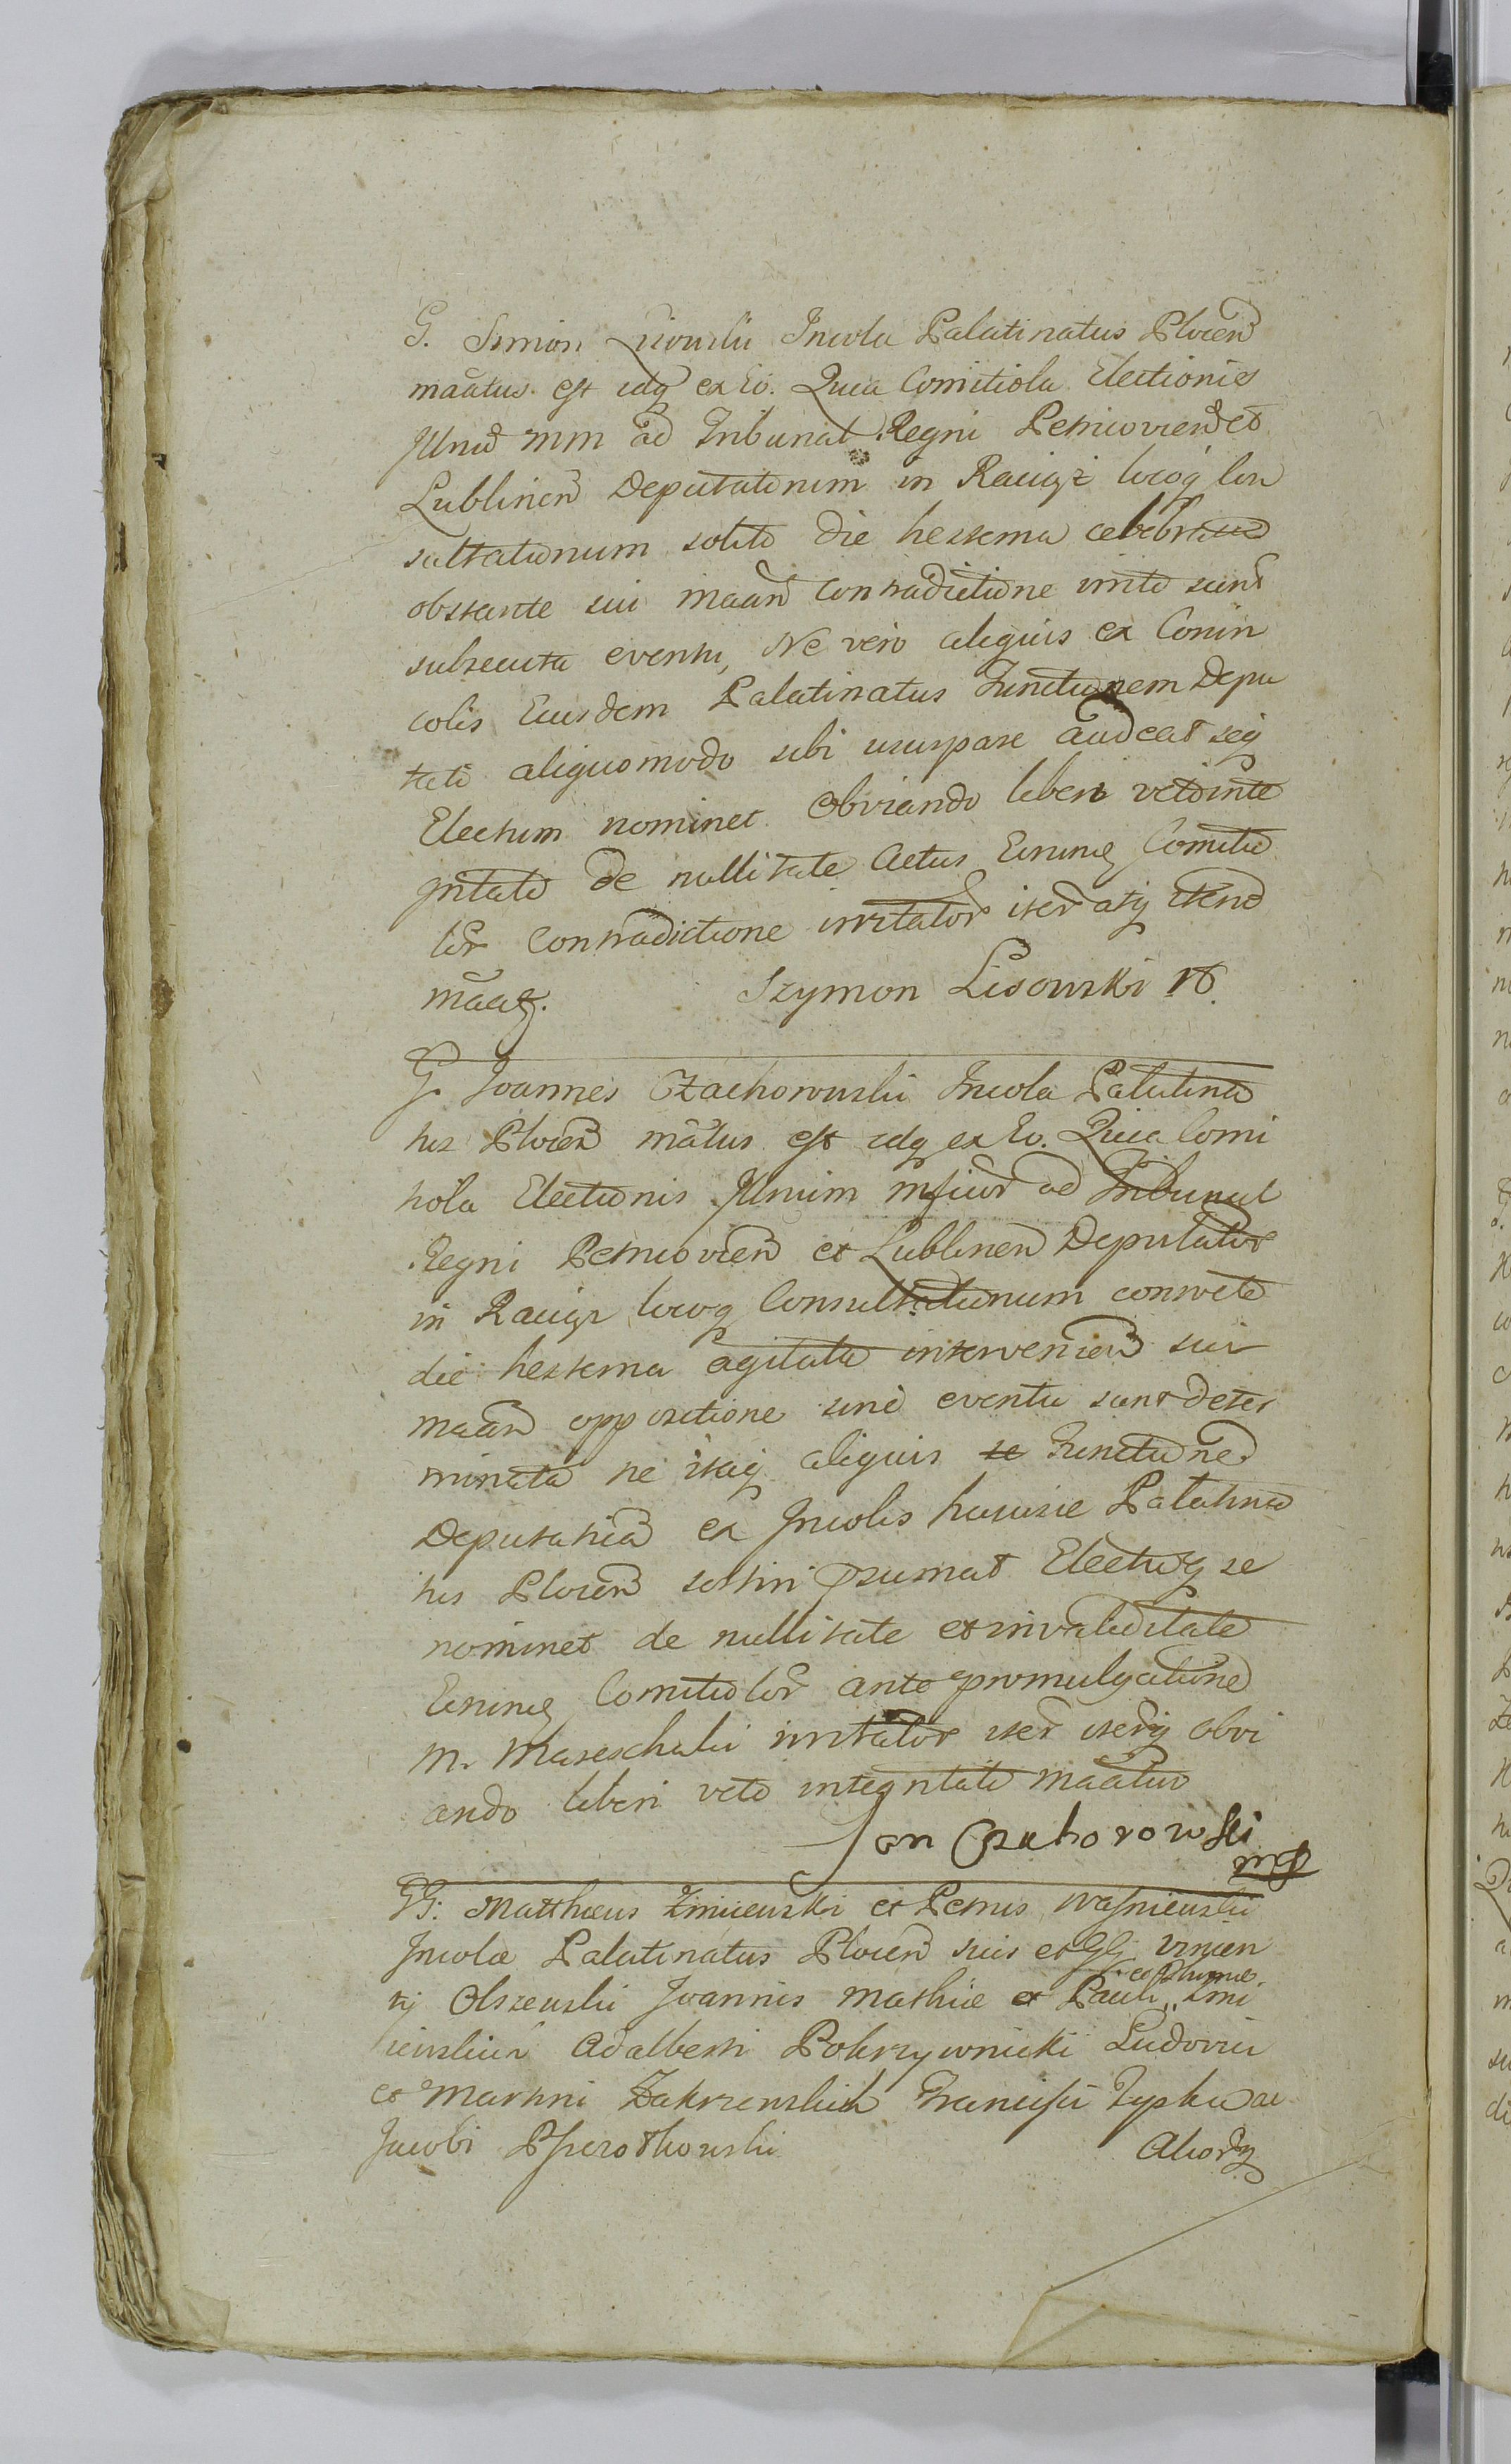 G. Simon Lisowski Incola Palatinatus Plocen
maatus est idq ex Eo. Quia Comitiola Electionis
Illmd mm ad Tribunal Regni Petricovien et
Lublinen Deputatorum in Raciąż locoq Con
sultationum solito die hesterna celebrata
obstante sui maan Contradictione irrito sunt
subsecuta eventu, Ne vero aliquis ex Coniin
colis Eiusdem Palatinatus Functionem Depu
tati aliquomodo sibi usurpare audeat seq
Electum nominet Obviando liberi veto inte
gritati de nullitate Actus Eorunq Comitio
lor Contradictione irritator iter atq iterud
maatq. Szymon Lisowski
G. Joannes Czachorowski Incola Palatina
tus Plocen matus est idq ex Eo. Quia Comi
tiola Electionis Illmum mficor ad Tribunal
Regni Petricovien et Lublinen Deputator
in Raciąż locoq Consultationum consveto
die hesterna agitata intervenien sui
maan oppositione sine eventu sunt deter
minata ne itaq aliquis se Functione
Deputatria ex Incolis huiusce Palatina
tus Plocen sortiri psumat Electuq se
nominet de nullitate et invaliditate
Eorunq Comitiolor ante promulgatione
M. Mareschalci irritator iter iterq obvi
ando liberi veto integritati maatur
Jan Czachorowski
mp
GG: Matthaeus Zmiiewski et Petrus Waśniewski
Incolae Palatinatus Plocen suis et GG Vincen
tij Olszewski Joannis Mathiae et Pauli Zmi
iewskich Adalberti Pokrzywnicki Ludovici
et Martini Zakrzewskich Francisci Rypka ac
Jacobi
Aliorq